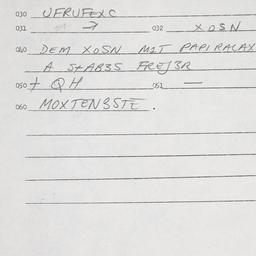 030 UFRUFEXC
031 → 032 XOSN
040 DEM XOSN M2T PAPIRALAX
A StAB3S FREJ3R
050 + QH 051 —
060 MOXTEN3STE.